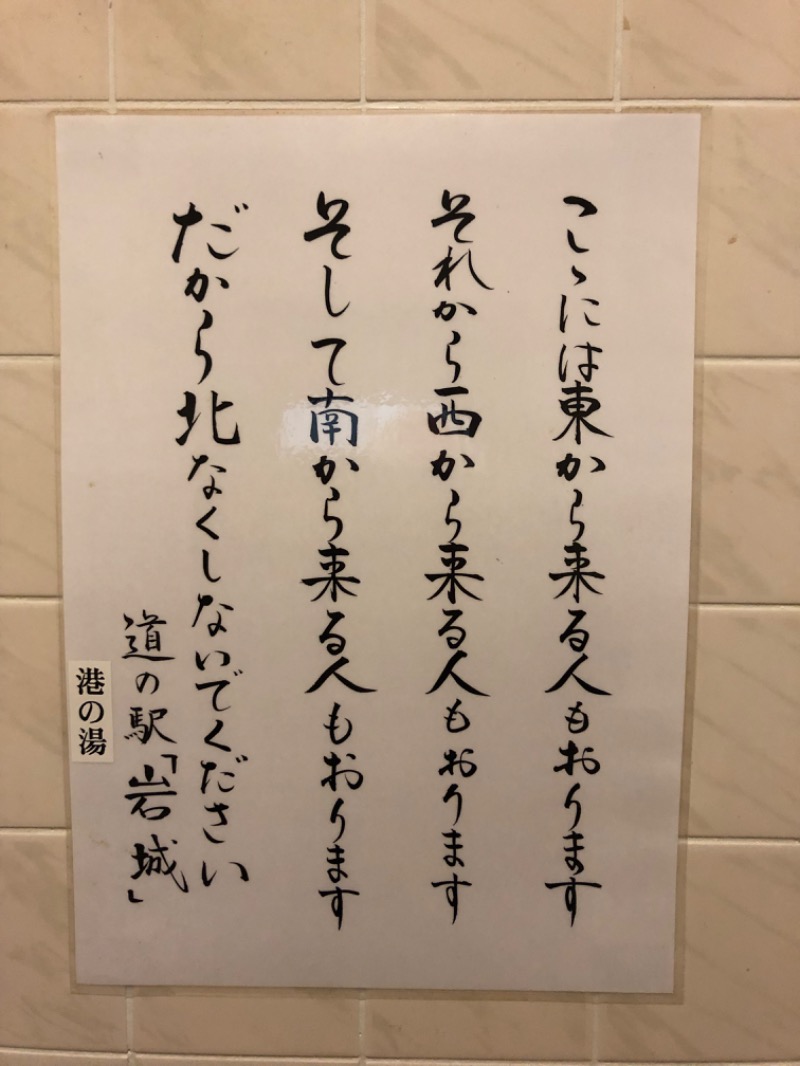 こゝには東から来る人もおります
それから西から来る人もおります
そして南から来る人もおります
だから北なくしないでください
道の駅「岩城」
港の湯